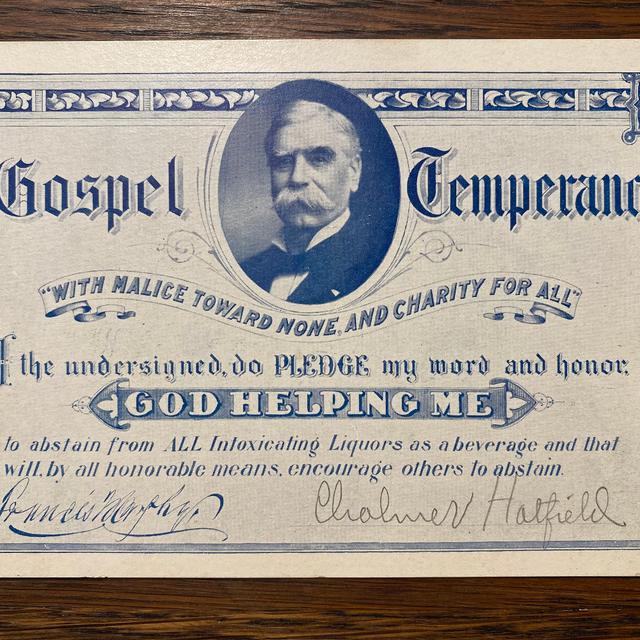 Gospel Temperanc
"WITH MALICE TOWARD NONE, AND CHARITY FOR ALL"
I the undersigned, do PLEDGE my word and honor,
GOD HELPING ME
to abstain from ALL Intoxicating Liquors as a beverage and that
will, by all honorable means, encourage others to abstain.
Francis Murphy Chalmer Hatfield